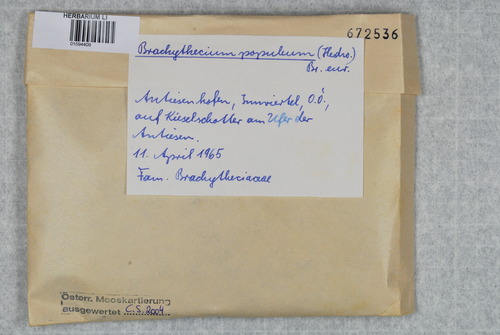 HERBARIUM LI
01594409
672536
Brachythecium populeum (Hedw.)
Br. eur.
Antiesenhofen, Innviertel, O.Ö.,
auf Kieselschotter am Ufer der
Antiesen.
11. April 1965
Fam. Brachytheciaceae
Österr. Mooskartierung
ausgewertet C.S. 2004